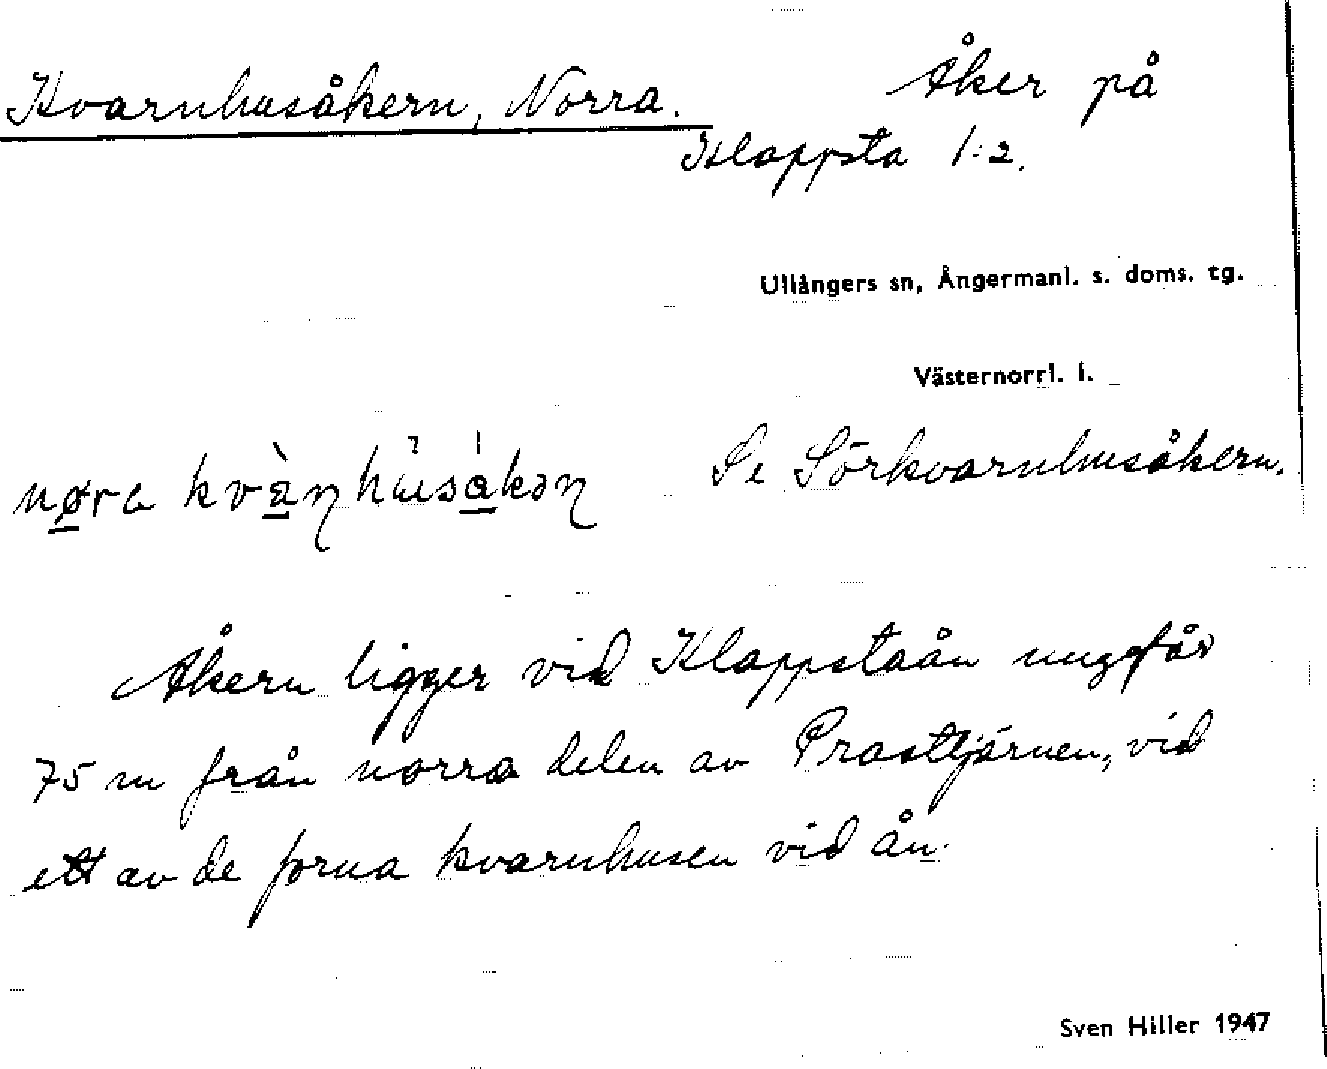 Kvarnhusåkern, Norra.
Åker på
Klappsta 1:2.
Ullångers sn, Ångermanl. s. doms. tg.
Västernorrl. l.
nø̱ra kvànhúsákən
Se Sörkvarnhusåkern.
Åkern ligger vid Klappstaån ungefär
75 m från norra delen av Prosttjärnen, vid
ett av de forna kvarnhusen vid ån.
Sven Hiller 1947